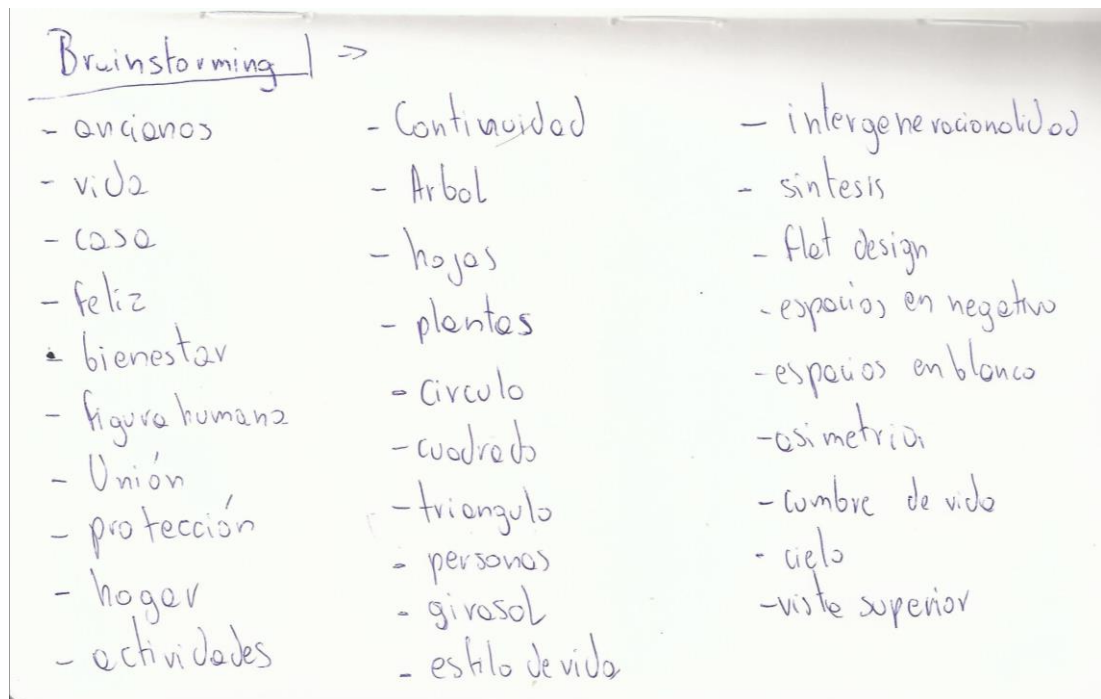 Brainstorming =>
- ancianos
- vida
- casa
- feliz
- bienestar
- figura humana
- Unión
- protección
- hogar
- actividades
- Continuidad
- Arbol
- hojas
- plantas
- circulo
- cuadrado
- triangulo
- personas
- girasol
- estilo de vida
- intergeneracionalidad
- sintesis
- flat design
- espacios en negativo
- espacios en blanco
- asimetria
- cumbre de vida
- cielo
- vista superior